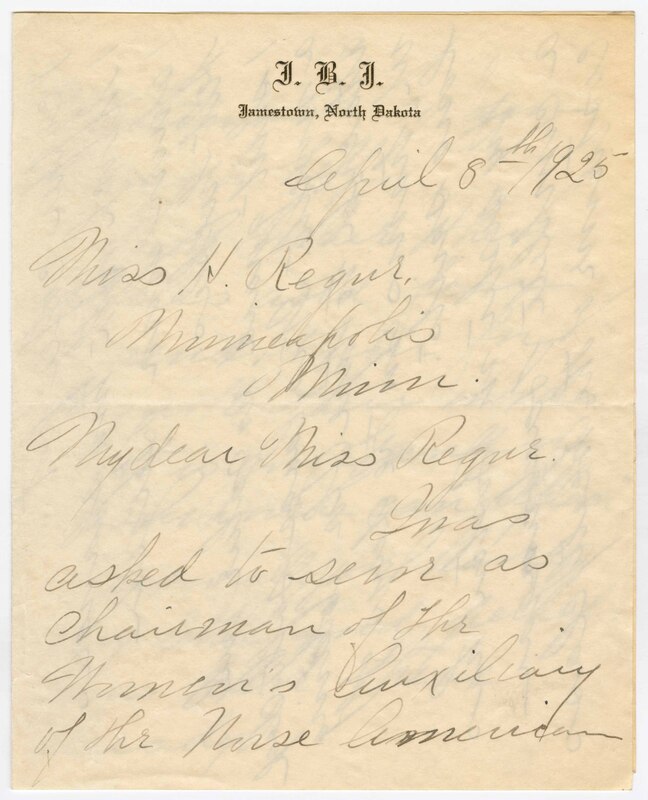 I. B. J.
Jamestown, North Dakota
April 8th 1925
Miss H. Regur.
Minneapolis
Minn.
My dear Miss Regur.
I was
asked to serve as
Chairman of the
Women's Auxiliary
of the Norse American